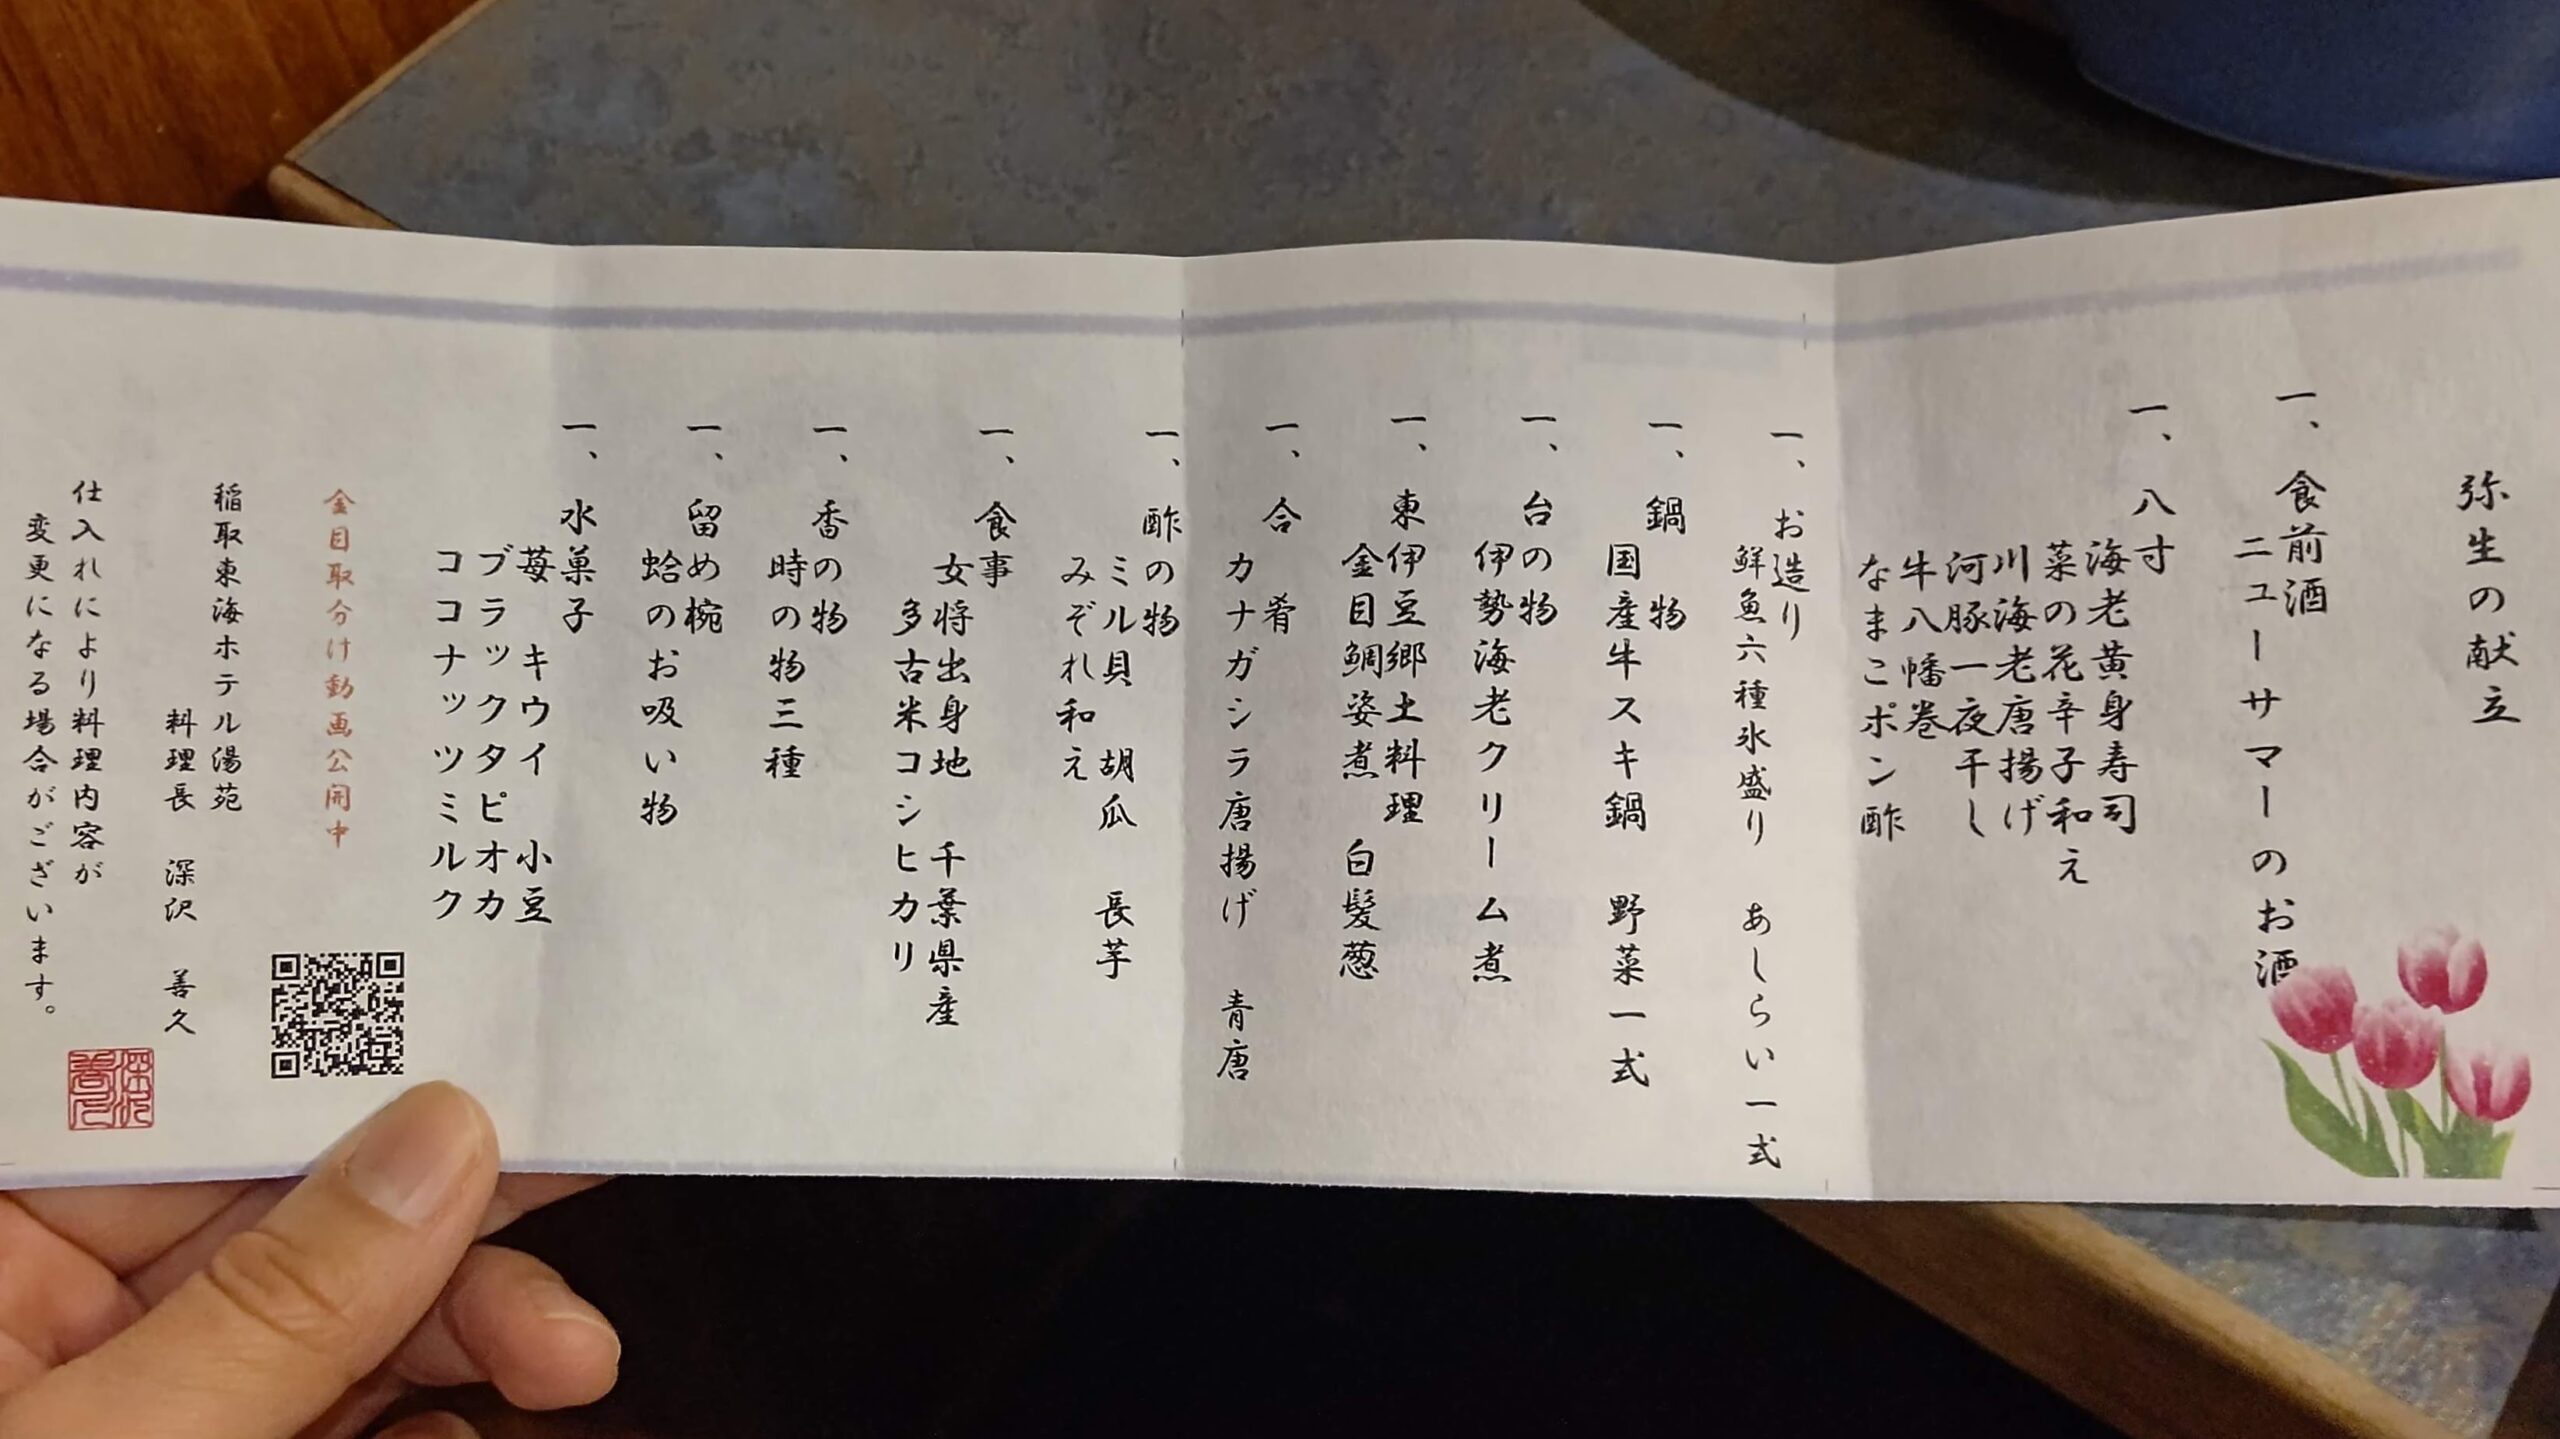 弥生の献立
一、食前酒
ニューサマーのお酒
一、八寸
海老黄身寿司
菜の花辛子和え
川海老唐揚げ
河豚一夜干し
牛八幡巻
なまこポン酢
一、お造り
鮮魚六種氷盛り　あしらい一式
一、鍋物
国産牛スキ鍋　野菜一式
一、台の物
伊勢海老クリーム煮
一、東伊豆郷土料理
金目鯛姿煮　白髪葱
一、合肴
カナガシラ唐揚げ　青唐
一、酢の物
ミル貝　胡瓜　長芋
みぞれ和え
一、食事
女将出身地　千葉県産
多古米コシヒカリ
一、香の物
時の物三種
一、留め椀
蛤のお吸い物
一、水菓子
苺　キウイ　小豆
ブラックタピオカ
ココナッツミルク
金目取分け動画公開中
稲取東海ホテル湯苑
料理長　深沢　善久
仕入れにより料理内容が
変更になる場合がございます。
深沢
善久